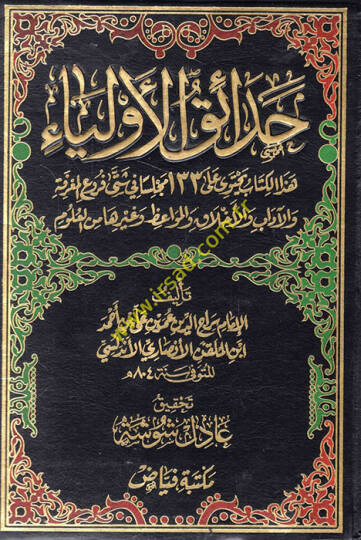 حَدَائِقُ الأَوْلِيَاءِ
هذا الكتاب يحتوى على ١٣٣ مجلسا في شتى فروع المعرفة
والآداب والأخلاق والمواعظ وغيرها من العلوم
تأليف
الإمام سراج الدين عمر بن علي بن أحمد
ابن الملقن الأنصاري الأندلسي
المتوفى سنة ٨٠٤هـ
تحقيق
عادل شوشة
مكتبة فياض
www.irsad.com.tr